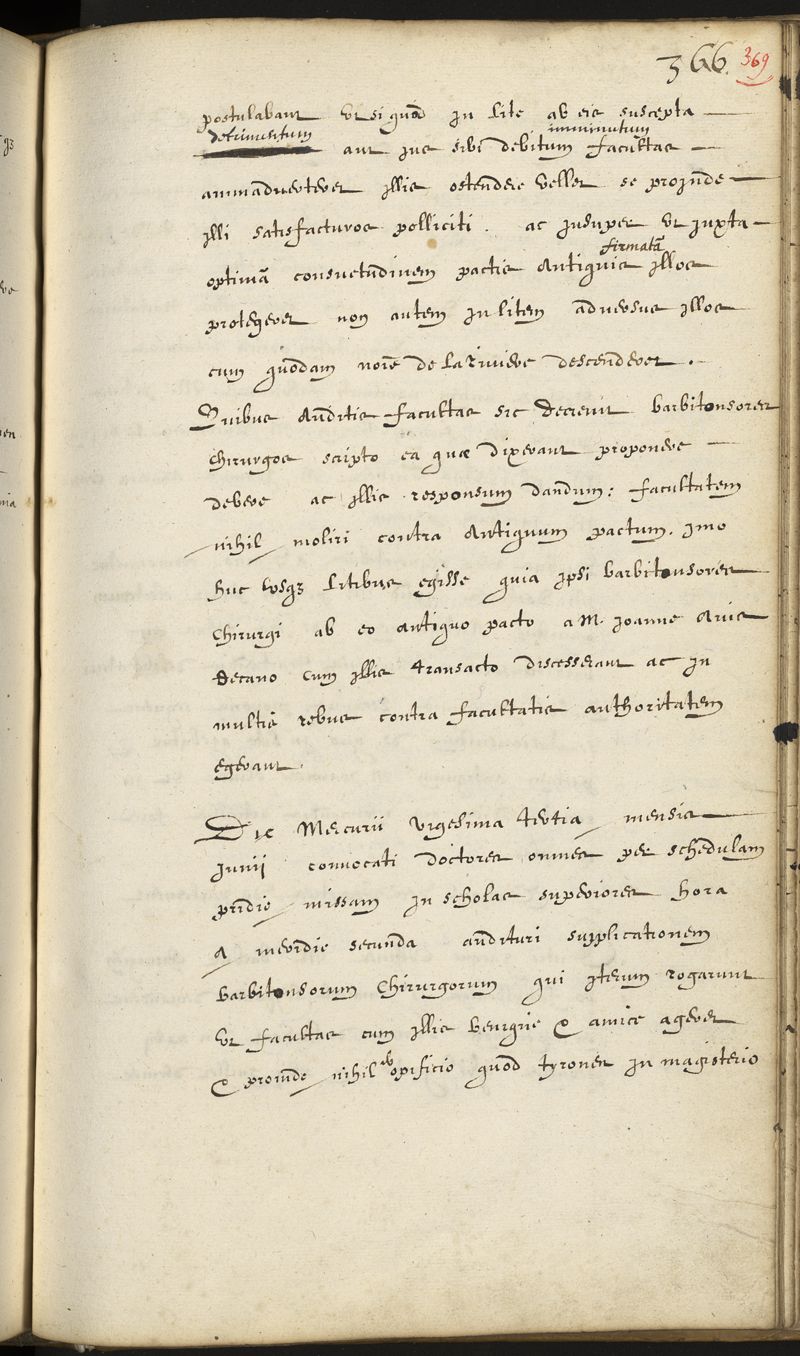 366. 369
postulabant ut si quod in lite ab eis suscepta
detrimentum aut jus sibi debitum imminutum facultas
animadverteret illis ostendere vellet se proinde
illi satisfacturos polliciti. ac insuper ut juxta
optimā consuetudinem pactis antiquis firmatā illos
protegeret non autem in litem adversus illos
cum quodam noīe de la Riviere descenderet.
Quibus auditis facultas sic decrevit barbitonsores
chirurgos scripto ea quæ dixerant proponere
debere ac illis responsum dandum: facultatem
nihil moliri contra antiquum pactum. imo
huc usq3 litibus egisse quia ipsi barbitonsores
chirurgi ab eo antiquo pacto a M. Joanne Avis
decano cum illis transacto discesserant ac in
multis rebus contra facultatis authoritatem
egerant.
Die Mercurii vigesima tertia mensis
Junii convocati doctores omnes per schedulam
pridie missam in scholas superiores hora
a meridie secunda audituri supplicationem
barbitonsorum chirurgorum qui iterum rogarunt
ut facultas cum illis benigne & amice ageret
& proinde nihil ab opificio quod tyrones in magisterio